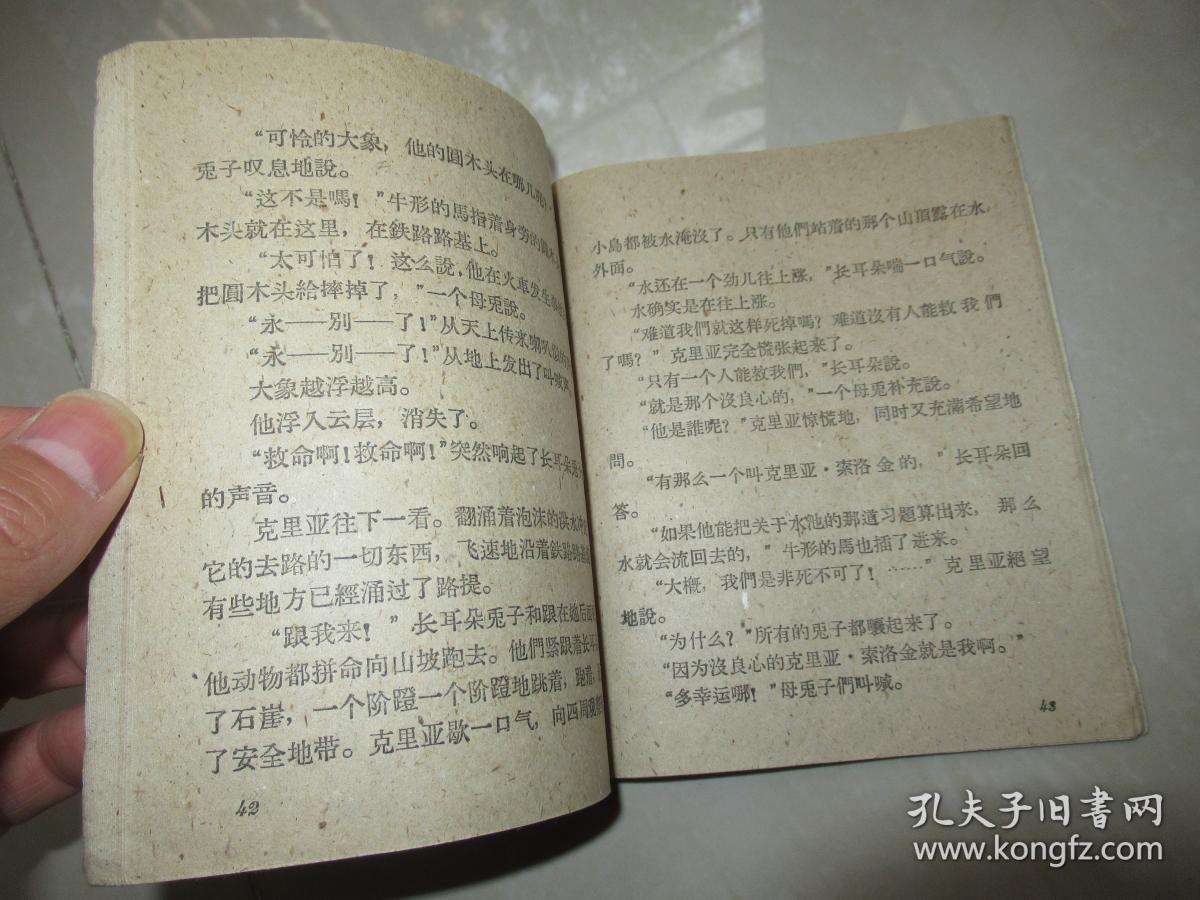 “可怜的大象，他的圓木头在哪儿
兎子叹息地說。
“这不是嗎！”牛形的馬指着身旁的圓木
木头就在这里，在鉄路路基上。
“太可怕了！这么說，他在火車发生
把圓木头給摔掉了，”一个母兎說。
“永——别——了！”从天上传来喇叭似的
“永——别——了！”从地上发出了叫喊声
大象越浮越高。
他浮入云层，消失了。
“救命啊！救命啊！”突然响起了长耳朵
的声音。
克里亚往下一看。翻涌着泡沫的洪水
它的去路的一切东西，飞速地沿着鉄路路基
有些地方已經涌过了路提。
“跟我来！”长耳朵兎子和跟在她后面
他动物都拼命向山坡跑去。他們紧跟着长耳
了石崖，一个阶蹬一个阶蹬地跳着，跑着，
了安全地带。克里亚歇一口气，向四周
42
小島都被水淹沒了。只有他們站着的那个山頂露在水
外面。
“水还在一个劲儿往上涨，”长耳朵喘一口气說。
水确实是在往上涨。
“难道我們就这样死掉嗎？难道沒有人能救我們
了嗎？”克里亚完全慌张起来了。
“只有一个人能救我們，”长耳朵說。
“就是那个沒良心的，”一个母兎补充說。
“他是誰呢？”克里亚惊慌地，同时又充滿希望地
問。
“有那么一个叫克里亚·索洛金的，”长耳朵回
答。
“如果他能把关于水池的那道习題算出来，那么
水就会流回去的，”牛形的馬也插了进来。
“大概，我們是非死不可了！……”克里亚絕望
地說。
“为什么？”所有的兎子都嚷起来了。
“因为沒良心的克里亚·索洛金就是我啊。”
“多幸运哪！”母兎子們叫喊。
43
孔夫子旧书网
www.kongfz.com